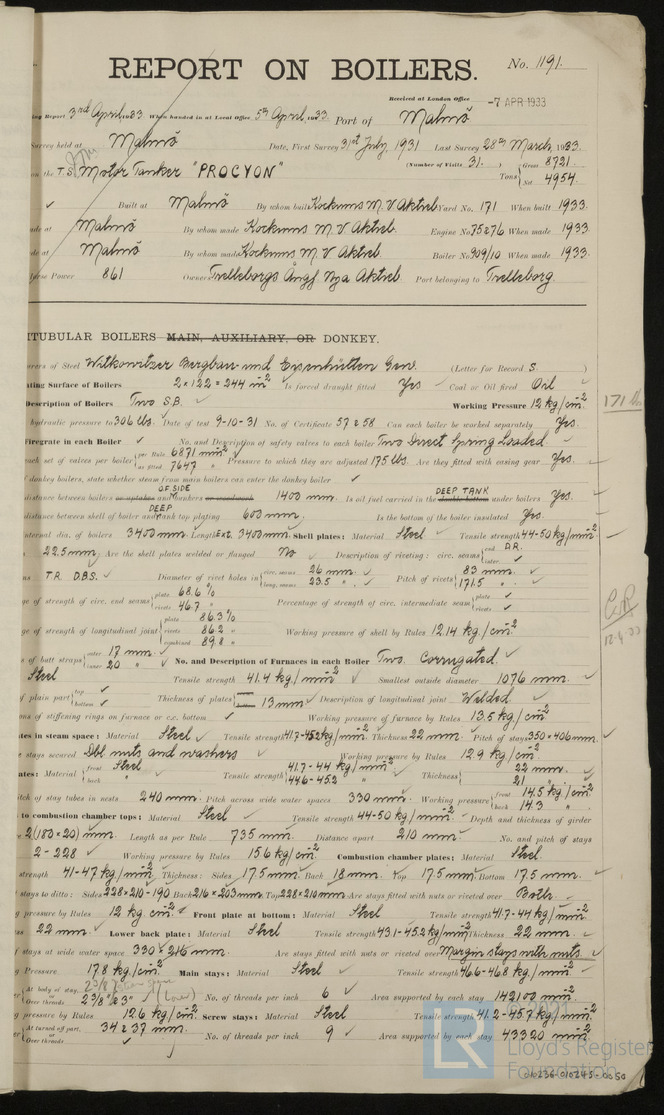 REPORT ON BOILERS. No. 1191.
Received at London Office -7 APR 1933
Report 3rd April 1933 When handed in at Local Office 5th April 1933 Port of Malmö
Survey held at Malmö Date, First Survey 31st July 1931 Last Survey 28th March 1933
(Number of Visits 31.) Gross 8721
on the T.S. Motor Tanker "PROCYON" Tons Net 4954.
Built at Malmö By whom built Kockums M. V Aktieb Yard No. 171 When built 1933.
at Malmö By whom made Kockums M. V Aktieb. Engine No. 75 & 76 When made 1933.
at Malmö By whom made Kockums M. V Aktieb. Boiler No. 909/10 When made 1933.
Horse Power 861 Owners Trelleborgs Ångf. Nya Aktieb. Port belonging to Trelleborg.
ITUBULAR BOILERS MAIN, AUXILIARY, OR DONKEY.
of Steel Witkowitzer Bergbau und Eisenhütten Gew. (Letter for Record S. )
ating Surface of Boilers 2 x 122 = 244 m2 Is forced draught fitted Yes Coal or Oil fired Oil
Description of Boilers Two S.B. Working Pressure 12 kg/cm2 171 lb
hydraulic pressure to 306 lbs. Date of test 9-10-31 No. of Certificate 57 & 58 Can each boiler be worked separately Yes.
Firegrate in each Boiler No. and Description of safety valves to each boiler Two Direct Spring Loaded
each set of valves per boiler per Rule 6871 mm2 as fitted 7647 " Pressure to which they are adjusted 175 lbs. Are they fitted with easing gear Yes.
of donkey boilers, state whether steam from main boilers can enter the donkey boiler
distance between boilers or uptakes and bunkers or woodwork OF SIDE 1400 mm. Is oil fuel carried in the double bottom under boilers DEEP TANK Yes.
distance between shell of boiler and DEEP tank top plating 600 mm. Is the bottom of the boiler insulated Yes.
internal dia. of boilers 3400 mm. Length Ext. 3400 mm. Shell plates: Material Steel Tensile strength 44-50 kg/mm2
22.5 mm. Are the shell plates welded or flanged No Description of riveting: circ. seams end D.R. inter.
T.R. D.B.S. Diameter of rivet holes in circ. seams 26 mm. long. seams 23.5 " Pitch of rivets 83 mm. 171.5 "
of strength of circ. end seams plate 68.6 % rivets 46.7 " Percentage of strength of circ. intermediate seam plate rivets
of strength of longitudinal joint plate 86.3 % rivets 86.2 " combined 89.8 " Working pressure of shell by Rules 12.14 kg/cm2
of butt straps outer 17 mm. inner 20 " No. and Description of Furnaces in each Boiler Two. Corrugated.
Steel Tensile strength 41.4 kg/mm2 Smallest outside diameter 1076 mm.
of plain part top bottom Thickness of plates 13 mm Description of longitudinal joint Welded.
of stiffening rings on furnace or c.c. bottom Working pressure of furnace by Rules 13.5 kg/cm2
ates in steam space: Material Steel Tensile strength 41.7-45.2 kg/mm2 Thickness 22 mm. Pitch of stays 350 x 406 mm.
stays secured Dbl nuts and washers Working pressure by Rules 12.9 kg/cm2
ates: Material front Steel back Tensile strength 41.7-44 kg/mm2 44.6-45.2 " Thickness 22 mm. 21 "
pitch of stay tubes in nests 240 mm. Pitch across wide water spaces 330 mm. Working pressure front 14.5 kg/cm2 back 14.3 "
to combustion chamber tops: Material Steel Tensile strength 44-50 kg/mm2 Depth and thickness of girder
2(180 x 20) mm. Length as per Rule 735 mm. Distance apart 210 mm. No. and pitch of stays
2 - 228 Working pressure by Rules 15.6 kg/cm2 Combustion chamber plates: Material Steel.
strength 41-47 kg/mm2 Thickness: Sides 17.5 mm. Back 18 mm. Top 17.5 mm. Bottom 17.5 mm.
stays to ditto: Sides 228 x 210-190 Back 216 x 203 mm. Top 228 x 210 mm. Are stays fitted with nuts or riveted over Both.
pressure by Rules 12 kg/cm2 Front plate at bottom: Material Steel Tensile strength 41.7-44 kg/mm2
22 mm. Lower back plate: Material Steel Tensile strength 43.1-45.2 kg/mm2 Thickness 22 mm.
stays at wide water space 330 x 216 mm. Are stays fitted with nuts or riveted over Margin stays with nuts.
Pressure 17.8 kg/cm2 Main stays: Material Steel Tensile strength 46.6-46.8 kg/mm2
At body of stay, or Over threads 2 3/8" & 3" No. of threads per inch 6 Area supported by each stay 142100 mm2
pressure by Rules 12.6 kg/cm2 Screw stays: Material Steel Tensile strength 41.2-45.7 kg/mm2
At turned off part, or Over threads 34 & 37 mm. No. of threads per inch 9 Area supported by each stay 43320 mm2
Lloyd's Register
Foundation
010236-010245-0050